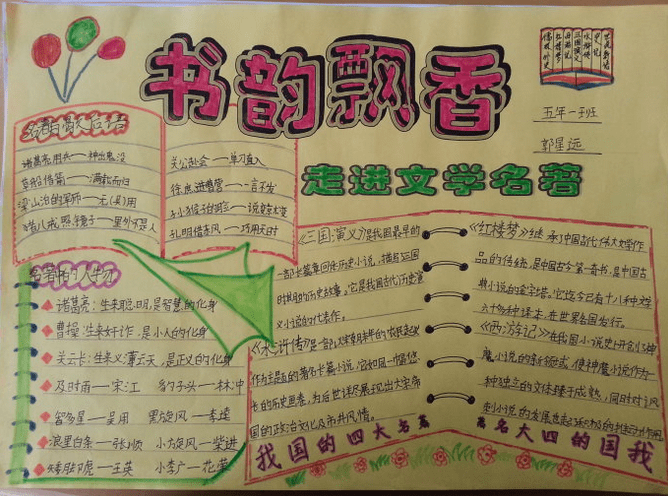 书韵飘香
走进文学名著
五年一班
郭星远
名著与歇后语
诸葛亮用兵——神出鬼没
草船借箭——满载而归
梁山泊的军师——无(吴)用
猪八戒照镜子——里外不是人
关公赴会——单刀直入
徐庶进曹营——一言不发
孙猴子的脸——说变就变
孔明借东风——巧用天时
名著中的人物
诸葛亮:生来聪明,是智慧的化身
曹操:生来奸诈,是小人的化身
关云长:生来义薄云天,是正义的化身
及时雨——宋江 豹子头——林冲
智多星——吴用 黑旋风——李逵
浪里白条——张顺 小旋风——柴进
矮脚虎——王英 小李广——花荣
《三国演义》是我国最早的
一部长篇章回体历史小说,描写三国
时期的历史故事。它是我国古代历史演
义小说的代表作。
《水浒传》是一部以
作为主题的著名长篇小说,它如同一幅悠
长的历史画卷,为后世详尽展现出大宋帝
国的政治文化及市井风情。
我国的四大名著
《红楼梦》继承了中国古代伟大文学作
品的传统,是中国古今第一奇书,是中国古
典小说的金字塔。它迄今已有十八种文字
六十多种译本,在世界各国发行。
《西游记》在我国小说史上开创了神
魔小说的新领域,使神魔小说作为一
种独立的文体臻于成熟,同时对讽
刺小说的发展也起了积极的
著名大四的国我